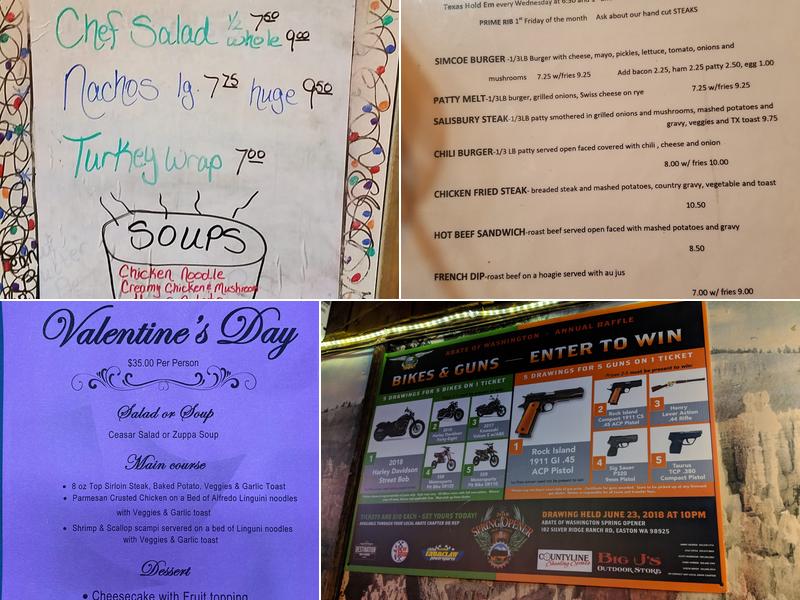 Chef Salad ½ 7.50 whole 9.00
Nachos lg. 7.75 huge 9.50
Turkey Wrap 7.00
SOUPS
Chicken Noodle
Creamy Chicken & Mushroom
Texas Hold Em every Wednesday at 6:30 and
PRIME RIB 1st Friday of the month Ask about our hand cut STEAKS
SIMCOE BURGER -1/3LB Burger with cheese, mayo, pickles, lettuce, tomato, onions and
mushrooms 7.25 w/fries 9.25 Add bacon 2.25, ham 2.25 patty 2.50, egg 1.00
PATTY MELT-1/3LB burger, grilled onions, Swiss cheese on rye 7.25 w/fries 9.25
SALISBURY STEAK-1/3LB patty smothered in grilled onions and mushrooms, mashed potatoes and
gravy, veggies and TX toast 9.75
CHILI BURGER-1/3 LB patty served open faced covered with chili , cheese and onion
8.00 w/ fries 10.00
CHICKEN FRIED STEAK- breaded steak and mashed potatoes, country gravy, vegetable and toast
10.50
HOT BEEF SANDWICH-roast beef served open faced with mashed potatoes and gravy
8.50
FRENCH DIP-roast beef on a hoagie served with au jus
7.00 w/ fries 9.00
Valentine's Day
$35.00 Per Person
Salad or Soup
Ceasar Salad or Zuppa Soup
Main course
• 8 oz Top Sirloin Steak, Baked Potato, Veggies & Garlic Toast
• Parmesan Crusted Chicken on a Bed of Alfredo Linguini noodles
with Veggies & Garlic toast
• Shrimp & Scallop scampi served on a bed of Linguini noodles
with Veggies & Garlic toast
Dessert
• Cheesecake with Fruit topping
ABATE OF WASHINGTON - ANNUAL RAFFLE
BIKES & GUNS — ENTER TO WIN
5 DRAWINGS FOR 5 BIKES ON 1 TICKET
5 DRAWINGS FOR 5 GUNS ON 1 TICKET
1
2018
Harley Davidson
Street Bob
2
2018
Harley Davidson
Forty-Eight
3
2017
Kawasaki
4
SSR
Motorsports
Pit Bike
5
SSR
Motorsports
Pit Bike
1
Rock Island
1911 GI .45
ACP Pistol
2
Rock Island
Compact 1911 CS
.45 ACP Pistol
3
Henry
Lever Action
.44 Rifle
4
Sig Sauer
P320
9mm Pistol
5
Taurus
TCP .380
Compact Pistol
TICKETS ARE $10 EACH - GET YOURS TODAY!
AVAILABLE THROUGH YOUR LOCAL ABATE CHAPTER OR REP
DESTINATION
SPRING OPENER
DRAWING HELD JUNE 23, 2018 AT 10PM
ABATE OF WASHINGTON SPRING OPENER
182 SILVER RIDGE RANCH RD, EASTON WA 98925
COUNTYLINE
Shooting Sports
BIG J'S
OUTDOOR STORE